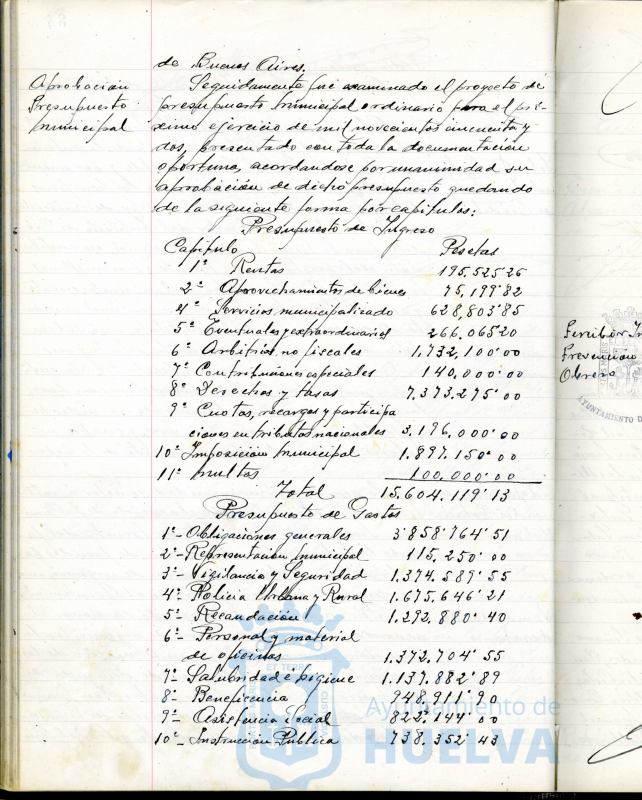 de Buenos Aires.
Aprobacion
Presupuesto
municipal
Seguidamente fué examinado el proyecto de
presupuesto municipal ordinario para el pró-
ximo ejercicio de mil novecientos cincuenta y
dos, presentado con toda la documentacion
oportuna, acordandose por unanimidad su
aprobación de dicho presupuesto quedando
de la siguiente forma por capitulos:
Presupuesto de Ingreso
Capitulo Pesetas
1º Rentas 195,525'26
2º Aprovechamientos de bienes 75,199'82
4º Servicios municipalizado 628,803'85
5º Eventuales y extraordinarios 266.065'20
6º Arbitrios no fiscales 1,732,100'00
7º Contribuciones especiales 140,000'00
8º Derechos y tasas 7.373.275'00
9º Cuotas, recargos y participa
ciones en tributos nacionales 3.196,000'00
10º Imposición municipal 1.897.150'00
11º multas 100.000'00
Total 15.604.119'13
Presupuesto de Gastos
1º- Obligaciones generales 3'858'764'51
2º- Representacion municipal 115.250'00
3º- Vigilancia y Seguridad 1.374.589'55
4º- Policia Urbana y Rural 1.675,646'21
5º- Recaudación 1.292.880'40
6º- Personal y material
de oficinas 1.372.704'55
7º- Salubridad e higiene 1.139.882'89
8º- Beneficencia 948,911'90
9º- Asistencia Social 822.144'00
10º- Instrucción Pública 738.352'43
Prevencion
Obrero
AYUNTAMIENTO D
Ayuntamiento de
HUELVA